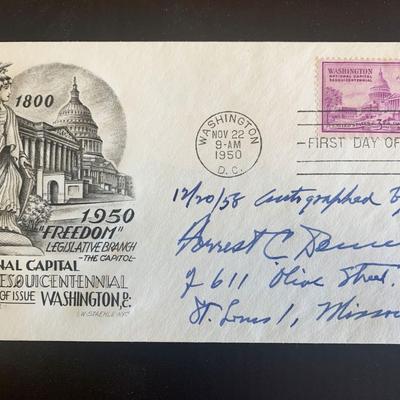 1800
1950
"FREEDOM"
LEGISLATIVE BRANCH
-THE CAPITOL-
NAL CAPITAL
ESQUICENTENNIAL
OF ISSUE WASHINGTON,
W. STAEHLE NYC
WASHINGTON
NOV 22
9-AM
1950
D.C.
WASHINGTON
NATIONAL CAPITAL
SESQUICENTENNIAL
FIRST DAY OF
12/20/58 Autographed
Forrest C.
611 Olive Street
St. Louis 1, Missou